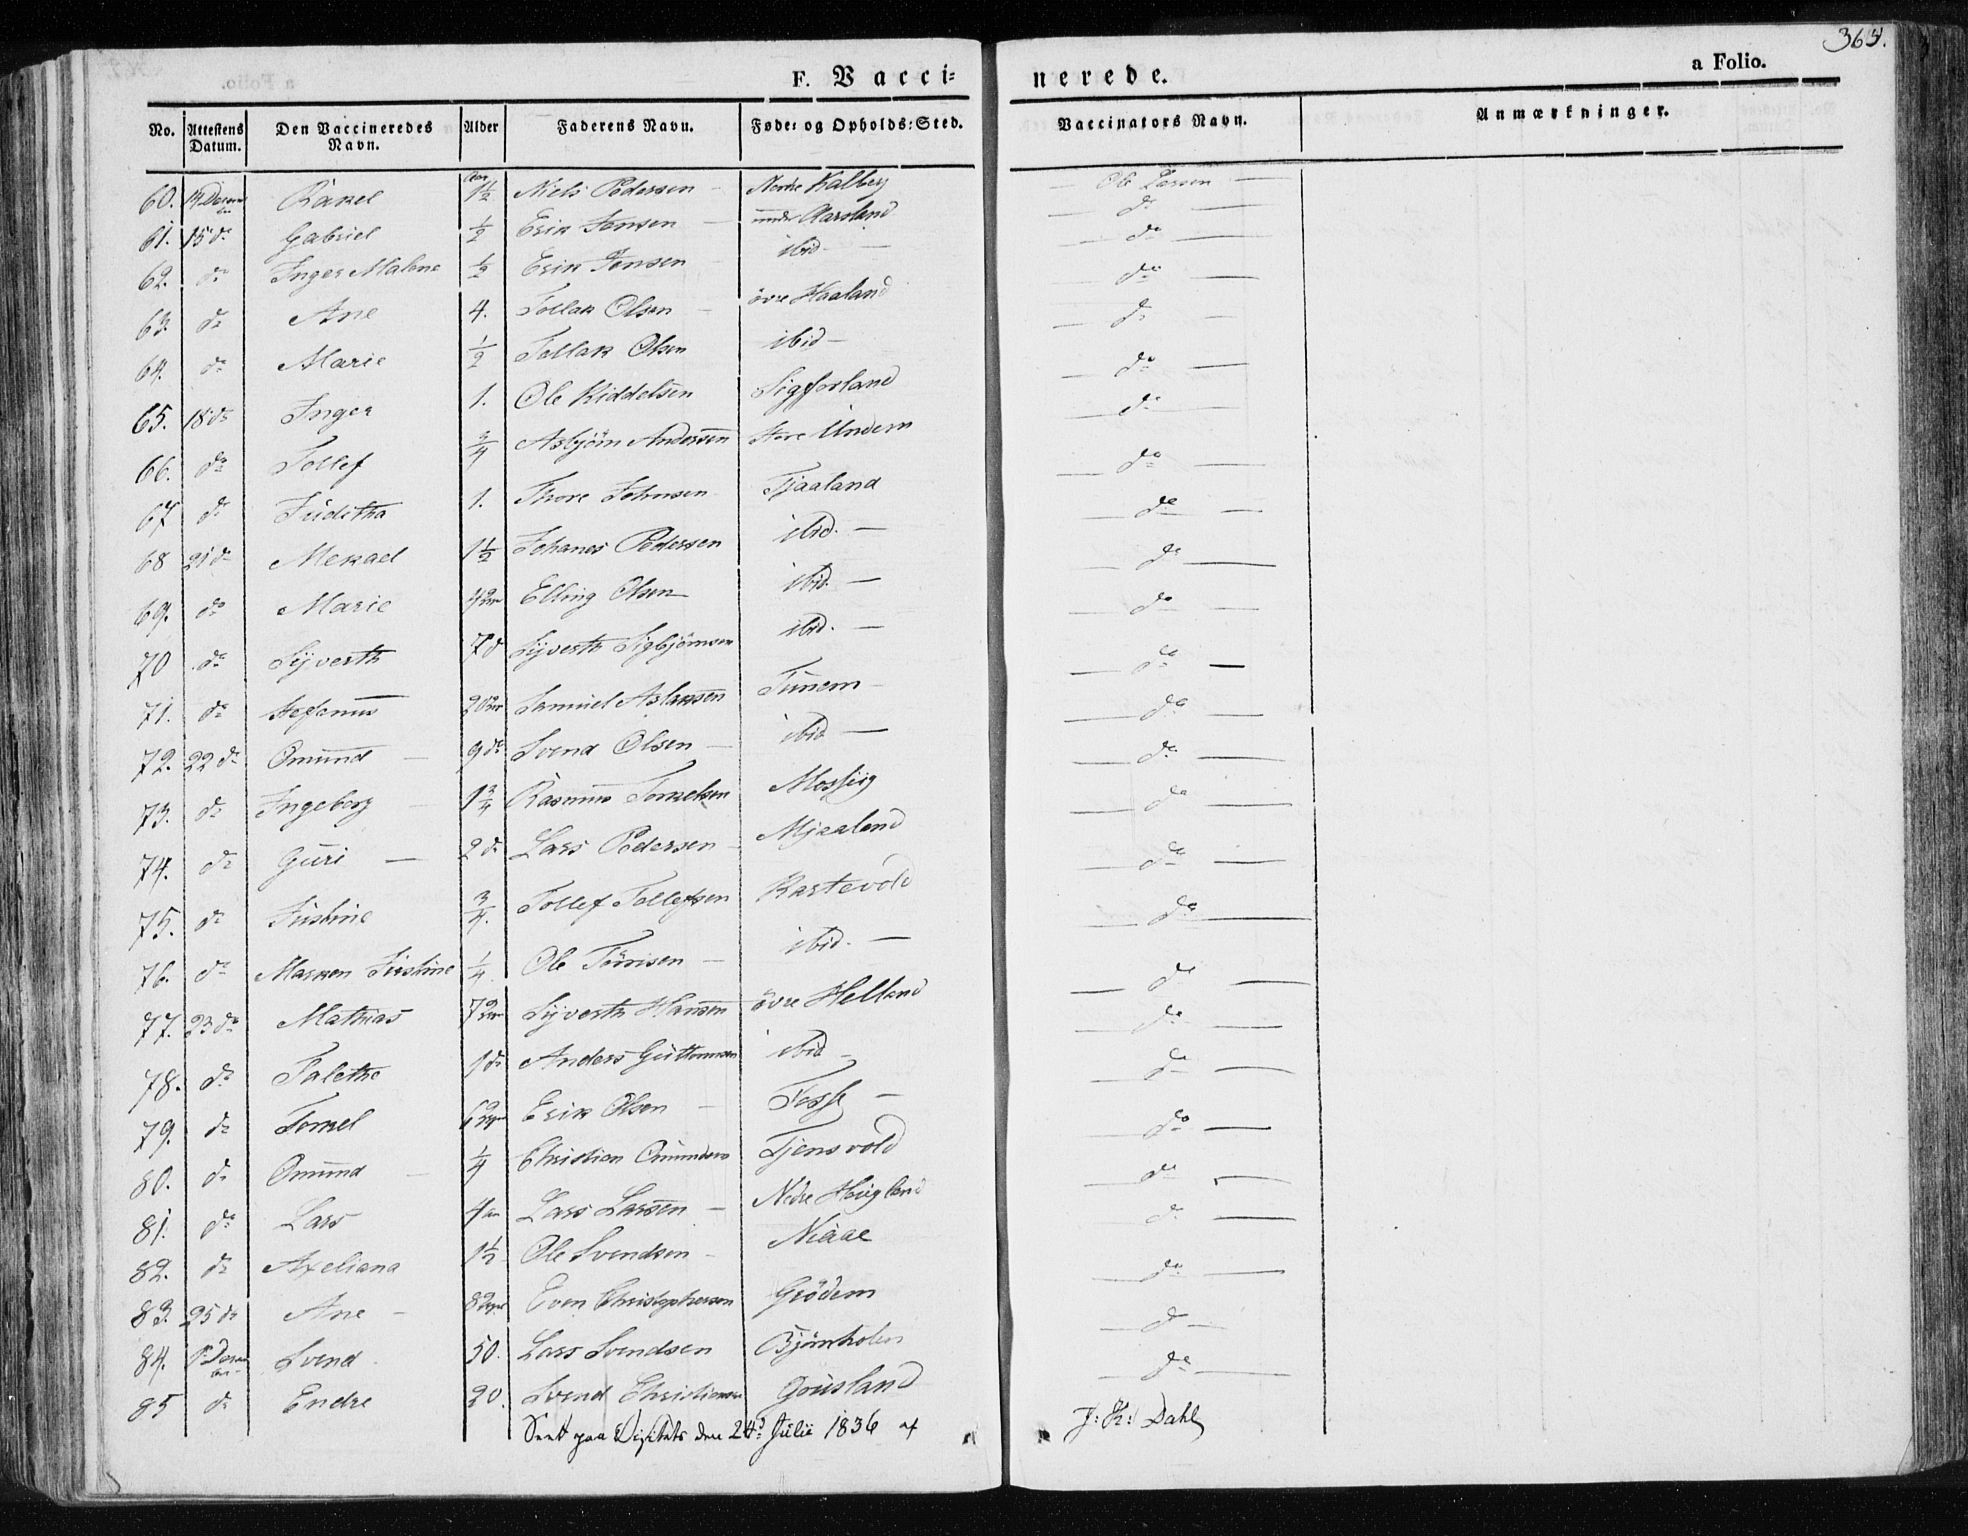 F. Vacci= nerede.
a Folio.
No. Attestens Datum. Den Vaccineredes Navn. Alder Faderens Navn. Føde= og Opholds=Sted. Vaccinators Navn. Anmærkninger.
60. Rakel 1½ Niels Pedersen – Nordre Kalberg – Ole Larsen –
61. 15 do Gabriel ½ Erik Jensen – under Aarsland – do –
62. do Inger Malene ½ Erik Jensen – ibid – – do –
63. do Ane 4. Tollak Olsen – øvre Haaland – do –
64. do Marie ½ Tollak Olsen ibid – – do –
65. 18 do Inger 1. Ole Kiddelsen Sigfarland – do –
66. do Tollef ¾ Asbjörn Anderssen Store Undem – do –
67 do Juditha 1. Thore Johnsen Tjaaland – do –
68 21 do Mekael 1½ Johanes Pedersen ibid. – – do –
69. do Marie Elling Olsen ibid. – – do –
70 do Syverth 7 do Syverth Sigbjörnsen ibid. – – do –
71. do Stefanus Samuel Aslaksen Tunem – – do –
72. 22 do Omund – 9 do Svend Olsen – ibid – – do –
73. do Ingeborg – 1¾ Rasmus Tornelsen – do –
74. do Guri – 2 do Lars Pedersen – Mjaaland – do –
75. do Justine ¾. Tollef Tollefsen Kartevold – do –
76. do Maren Justine ¼. Ole Törrisen – ibid. – – do –
77. 23 do Mathias Syverth Hansen øvre Helland – do –
78. do Talethe 1 do Anders Guttormsen ibid – – do –
79. do Tornel Erik Olsen – – do –
80. do Omund – ¼ Christian Omundsen Tjensvold – do –
81. do Lars Lars Larssen – Nedre Hougland – do –
82. do Axeliana 1½ Ole Svendsen – – do –
83. 25 do Ane – Even Christophersen Grödem – do –
84. Svend 50. Lars Svendsen Björnholen – do –
85 do Endre 20. Svend Christiansen Gousland – do –
Seet paa Visitats den 24d Julii 1836 af J: K: Dahl